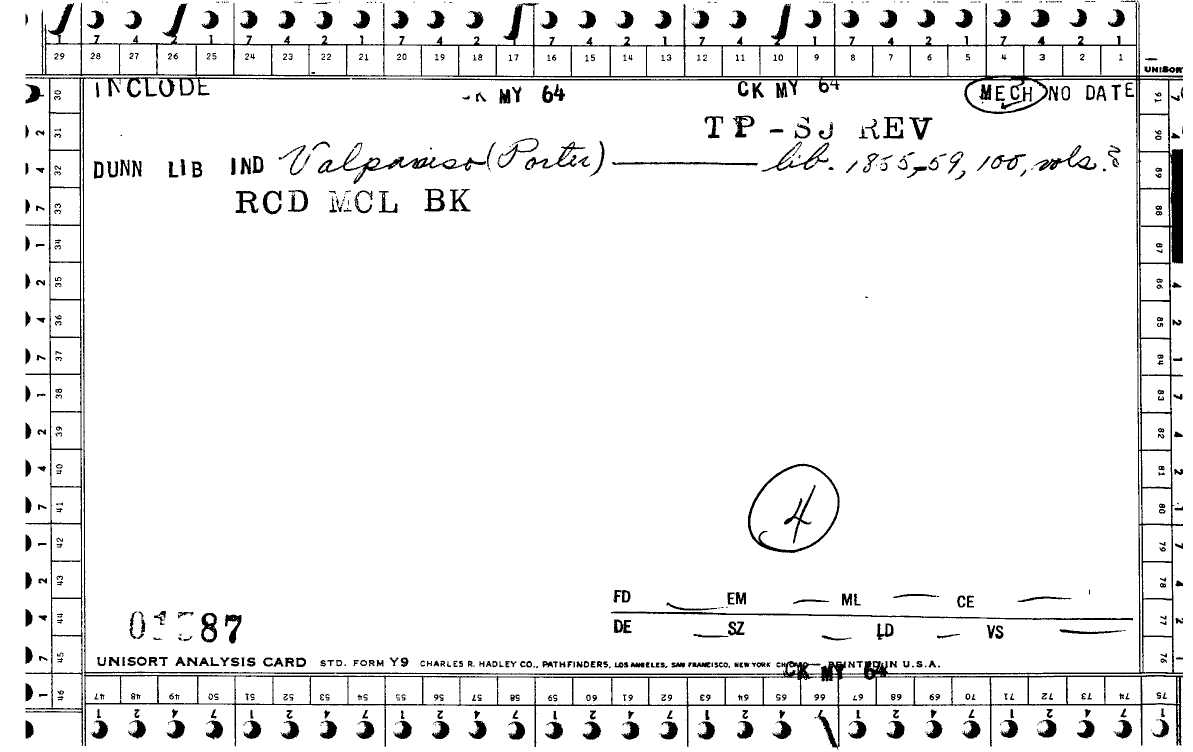 7 4 2 1 7 4 2 1 7 4 2 1 7 4 2 1 7 4 2 1 7 4 2 1 7 4 2 1
29 28 27 26 25 24 23 22 21 20 19 18 17 16 15 14 13 12 11 10 9 8 7 6 5 4 3 2 1
UNISORT
INCLODE CK MY 64 CK MY 64 MECH NO DATE
TP - SJ REV
DUNN LIB IND Valparaiso (Porter) — lib. 1855-59, 100, vols. ?
RCD MCL BK
4
FD EM ML CE
DE SZ LD VS
87
UNISORT ANALYSIS CARD STD. FORM Y9 CHARLES R. HADLEY CO., PATHFINDERS, LOS ANGELES, SAN FRANCISCO, NEW YORK CHICAGO — PRINTED IN U.S.A.
CK MY 64
46 47 48 49 50 51 52 53 54 55 56 57 58 59 60 61 62 63 64 65 66 67 68 69 70 71 72 73 74 75
1 2 4 7 1 2 4 7 1 2 4 7 1 2 4 7 1 2 4 7 1 2 4 7 1 2 4 7